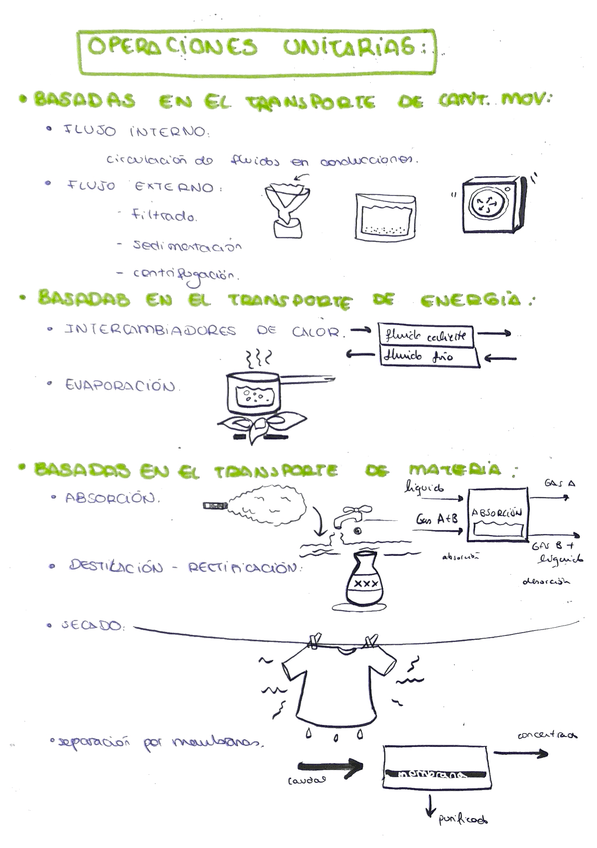 OPERACIONES UNITARIAS:
• BASADAS EN EL TRANSPORTE DE CANT. MOV:
• FLUJO INTERNO:
circulación de fluidos en conducciones.
• FLUJO EXTERNO:
- filtrado.
- sedimentación
- centrifugación.
• BASADAS EN EL TRANSPORTE DE ENERGÍA:
• INTERCAMBIADORES DE CALOR.
fluido caliente
fluido frío
• EVAPORACIÓN.
• BASADAS EN EL TRANSPORTE DE MATERIA:
• ABSORCIÓN.
líquido
GAS A
ABSORCIÓN
Gas A+B
GAS B +
líquido
absorción
desorción
• DESTILACIÓN - RECTIFICACIÓN:
XXX
• SECADO:
• separación por membranas.
caudal
membrana
concentrado
purificado